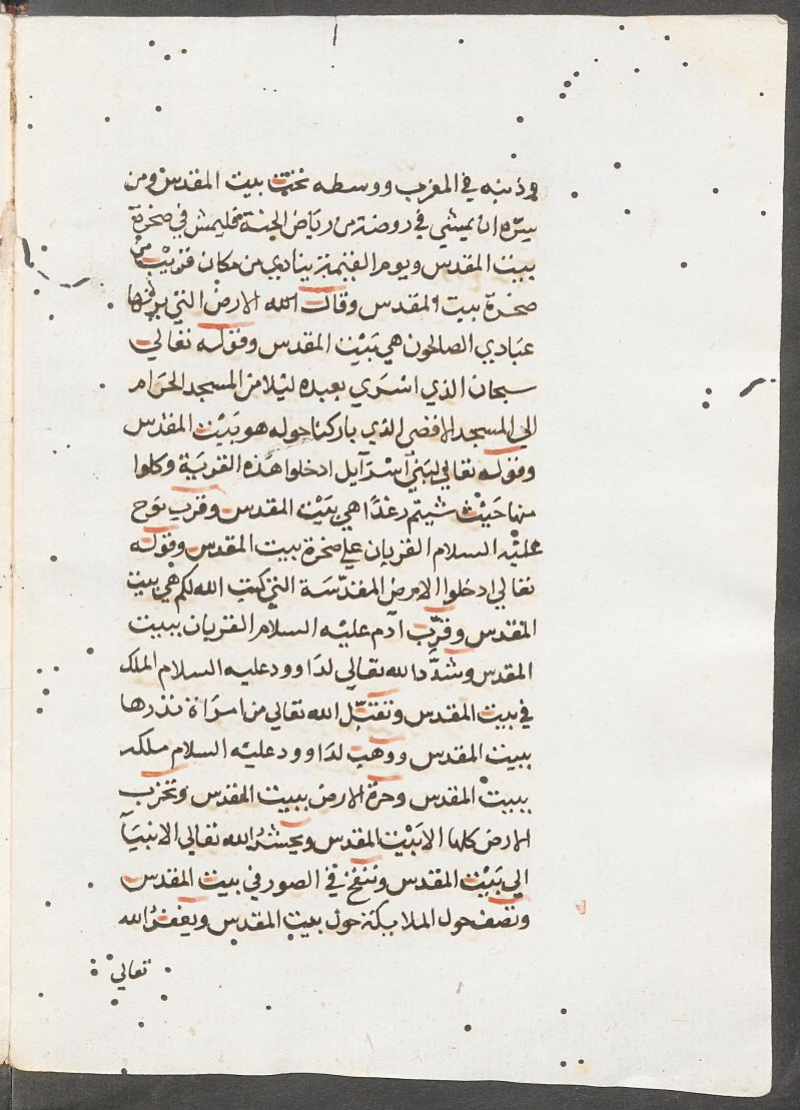 وذنبه في المغرب ووسطه تحت بيت المقدس ومن
سره ان يمشي في روضة من رياض الجنة فليمش في صخرة
بيت المقدس ويوم القيمة ينادي من مكان قريب من
صخرة بيت المقدس وقال الله الارض التي يرثها
عبادي الصالحون هي بَيْت المقدس وقوله تعالي
سبحان الذي اسْرَي بعبده ليْلا من المسجد الحَرَام
الي المسجد الاقصي الذي باركنا حوله هو بَيْت المقدس
وقوله تعالي لبَني اسْرَآيل ادخلوا هَذه القريَة وكلوا
منها حَيْث شيتم رغدًا هي بَيْت المقدس وقرب نوح
عليْه السلام القربان علي صخرة بيت المقدس وقوله
تعالي ادخلوا الارض المقدّسَة التي كتب الله لكم هي بيت
المقدس وقرّب آدم عليْه السلام القربان ببيت
المقدس وشدّد الله تعالي لدَاوود عليه السلام الملك
في بيت المقدس وتقبّل الله تعالي من امرَاة نذرها
ببيت المقدس ووهب لدَاوود عليْه السلام ملكه
ببيت المقدس وحرة الارض ببيت المقدس وتخرب
الارض كلها الا بَيْت المقدس ويحشرُ الله تعالي الانبيَآ
الي بَيْت المقدس وينفخ في الصور في بيت المقدس
وتصف حول الملايكة حول بيت المقدس ويغفرُ الله
تعالي